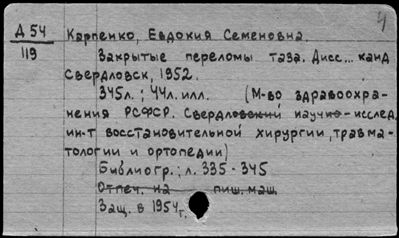 4
Д 54 Карпенко, Евдокия Семеновна.
119 Закрытые переломы таза. Дисс... канд
Свердловск, 1952.
345л.; 44л. илл. (М-во здравоохра-
нения РСФСР. Свердловский научно-исслед.
ин-т восстановительной хирургии, травма-
тологии и ортопедии)
Библиогр.: л. 335-345
Отпеч. на пиш. маш.
Защ. в 1954г.